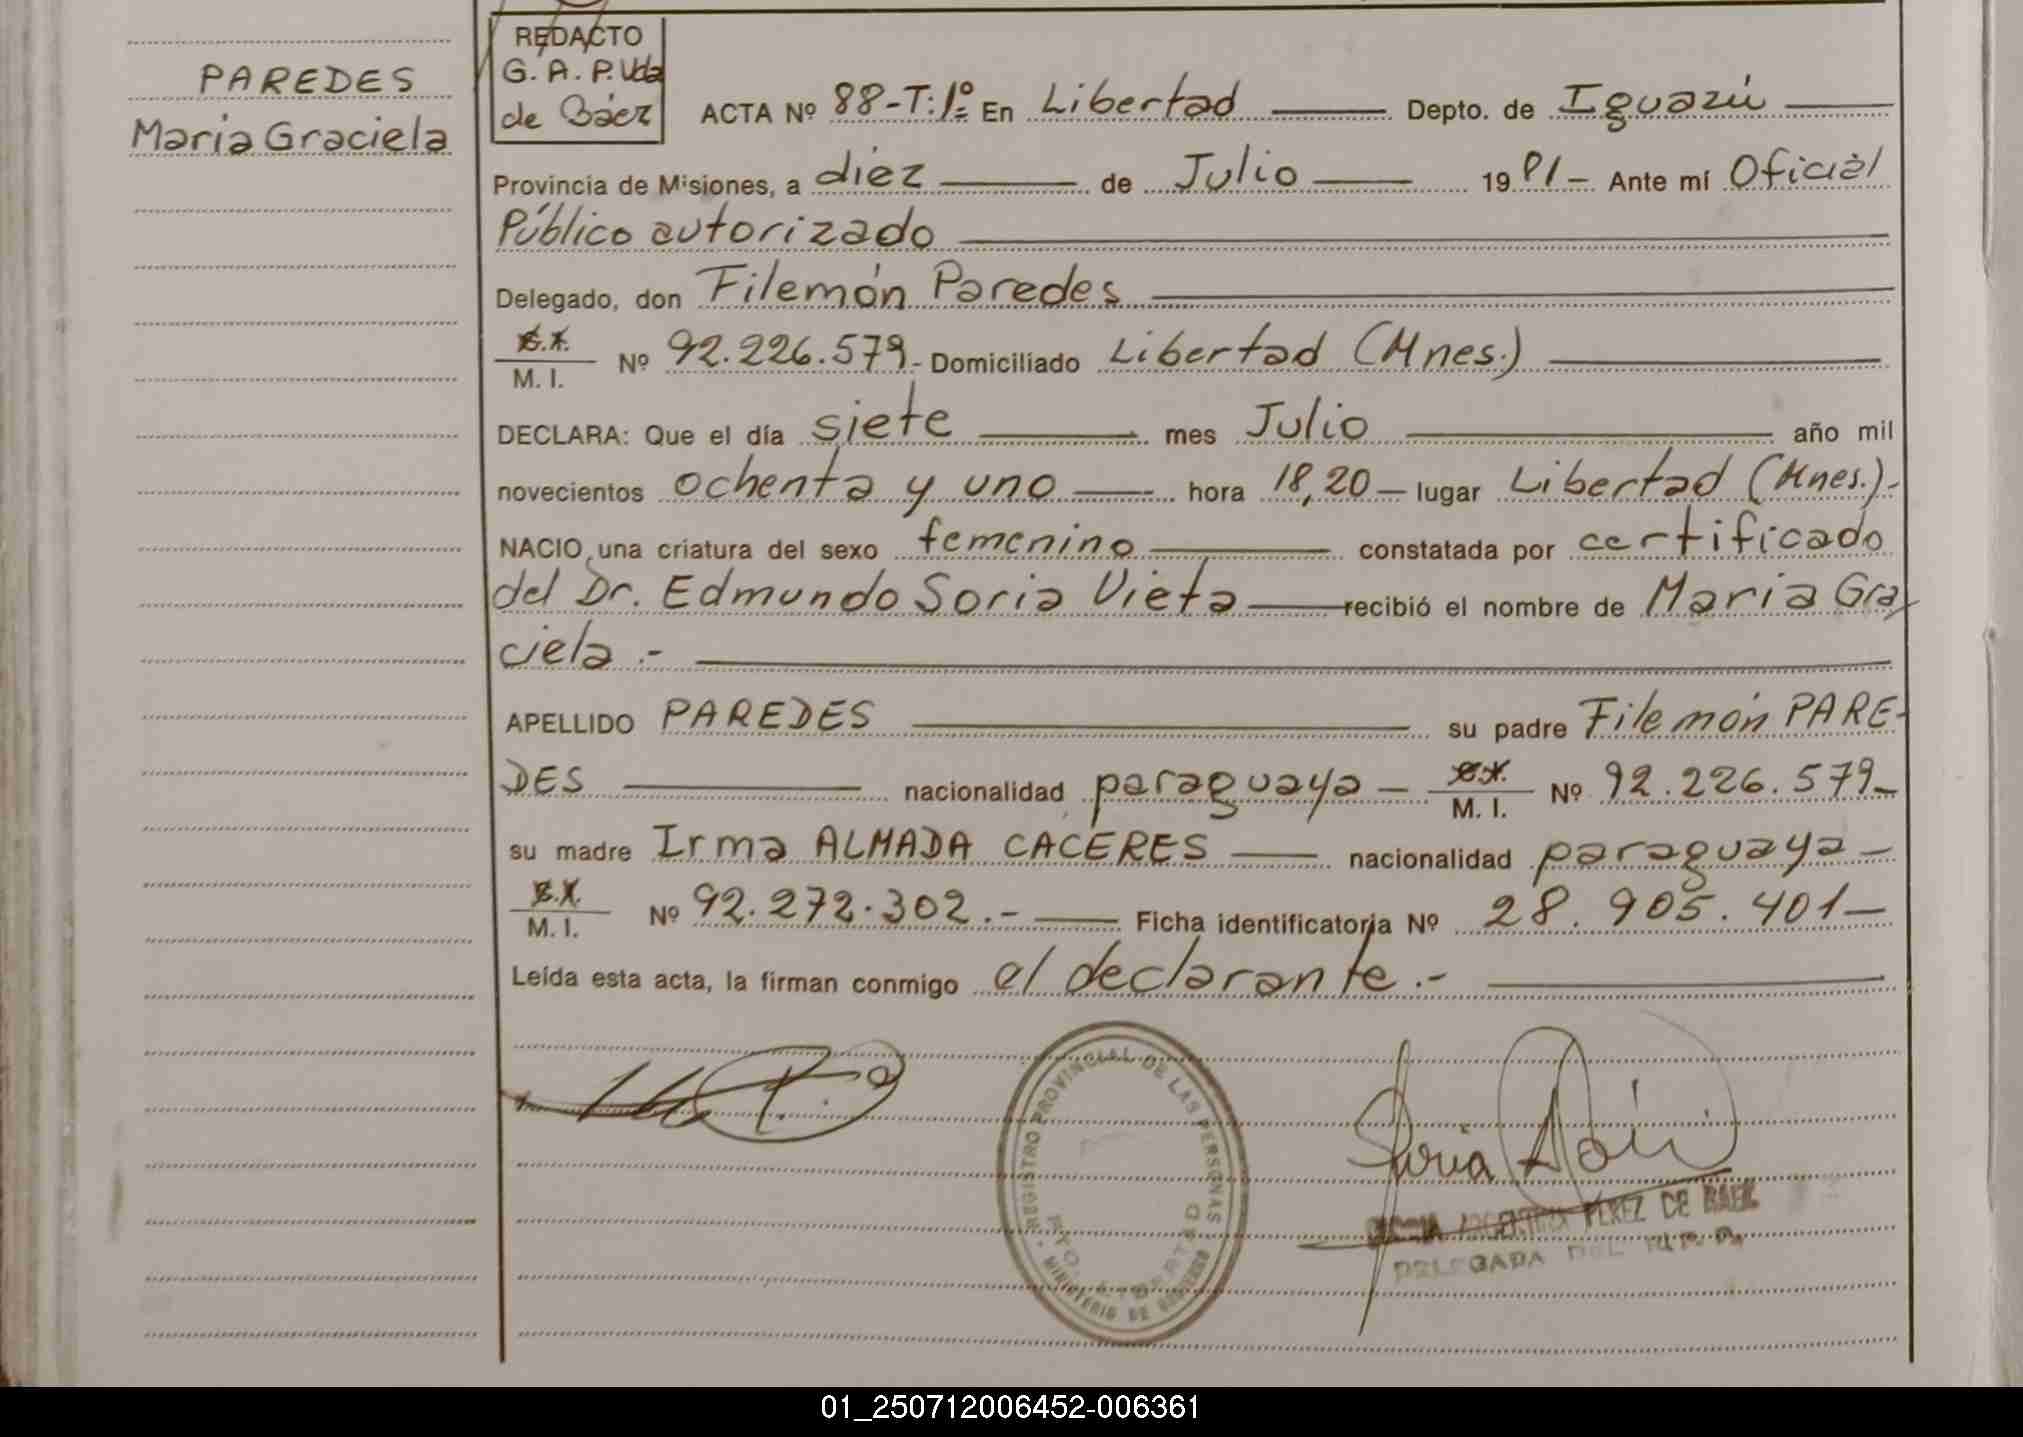 PAREDES
María Graciela
REDACTO
G. A. P. Vda
de Báez
ACTA Nº 88-T:1º En Libertad Depto. de Iguazú
Provincia de Misiones, a diez de Julio 1981- Ante mí Oficial
Público autorizado
Delegado, don Filemón Paredes
M. I. Nº 92.226.579- Domiciliado Libertad (Mnes.)
DECLARA: Que el día siete mes Julio año mil
novecientos ochenta y uno hora 18,20 lugar Libertad (Mnes.)-
NACIO una criatura del sexo femenino constatada por certificado
del Dr. Edmundo Soria Vieta recibió el nombre de María Gra
ciela .-
APELLIDO PAREDES su padre Filemón PARE-
DES nacionalidad paraguaya M. I. Nº 92.226.579-
su madre Irma ALMADA CACERES nacionalidad paraguaya
M. I. Nº 92.272.302.- Ficha identificatoria Nº 28.905.401-
Leída esta acta, la firman conmigo el declarante.-
REGISTRO PROVINCIAL DE LAS PERSONAS
PTO. LIBERTAD
MINISTERIO DE GOBIERNO
ARGENTINA PEREZ DE BAEZ
DELEGADA DEL R.P.P.
01_250712006452-006361